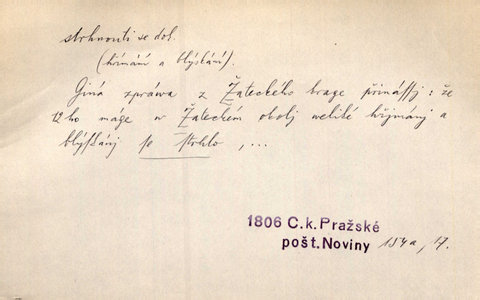 strhnouti se dok.
(hřímání a blýskání).
Giná zpráwa z Žateckého krage přináſſj: že
12ho máge w Žateckém okolj weliké hřjmánj a
blýſkánj se strhlo, ...
1806 C.k.Pražské
pošt.Noviny 154a, 17.